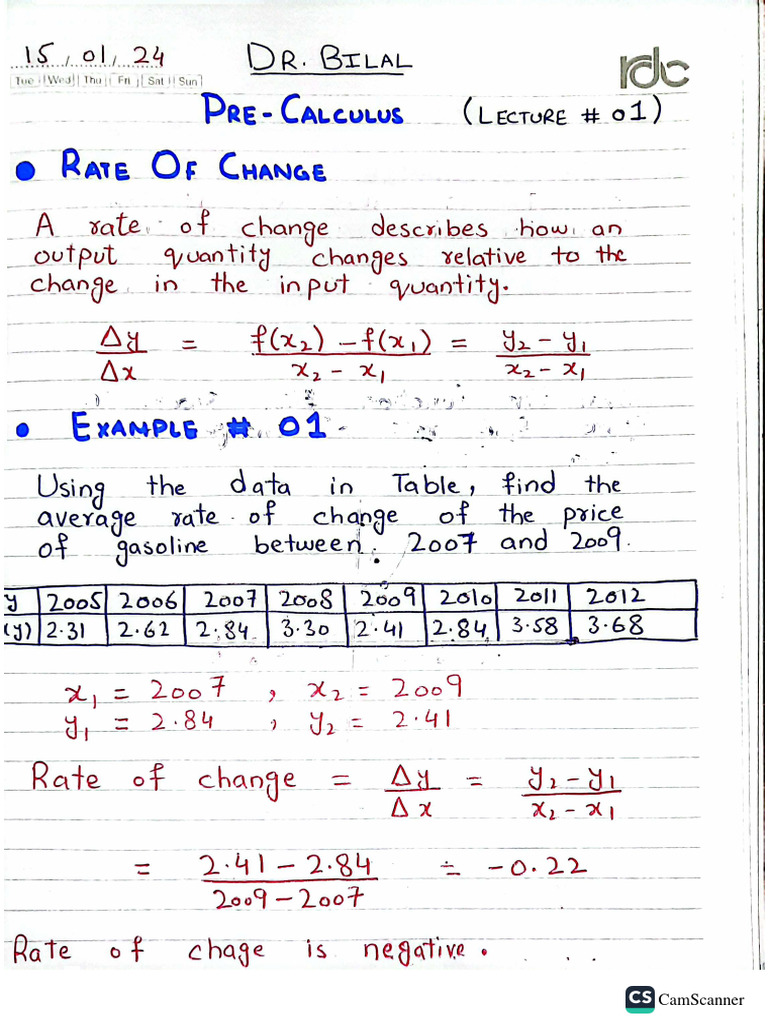 15, 01, 24
DR. BILAL
rdc
Tue Wed Thu Fri Sat Sun
PRE-CALCULUS (LECTURE # 01)
• RATE OF CHANGE
A rate of change describes how an
output quantity changes relative to the
change in the input quantity.
Δy/Δx = f(x₂) - f(x₁)/x₂ - x₁ = y₂ - y₁/x₂ - x₁
• EXAMPLE # 01
Using the data in Table, find the
average rate of change of the price
of gasoline between 2007 and 2009.
y 2005 2006 2007 2008 2009 2010 2011 2012
(y) 2.31 2.62 2.84 3.30 2.41 2.84 3.58 3.68
x₁ = 2007 , x₂ = 2009
y₁ = 2.84 , y₂ = 2.41
Rate of change = Δy/Δx = y₂ - y₁/x₂ - x₁
= 2.41 - 2.84/2009 - 2007 = -0.22
Rate of chage is negative.
CS CamScanner